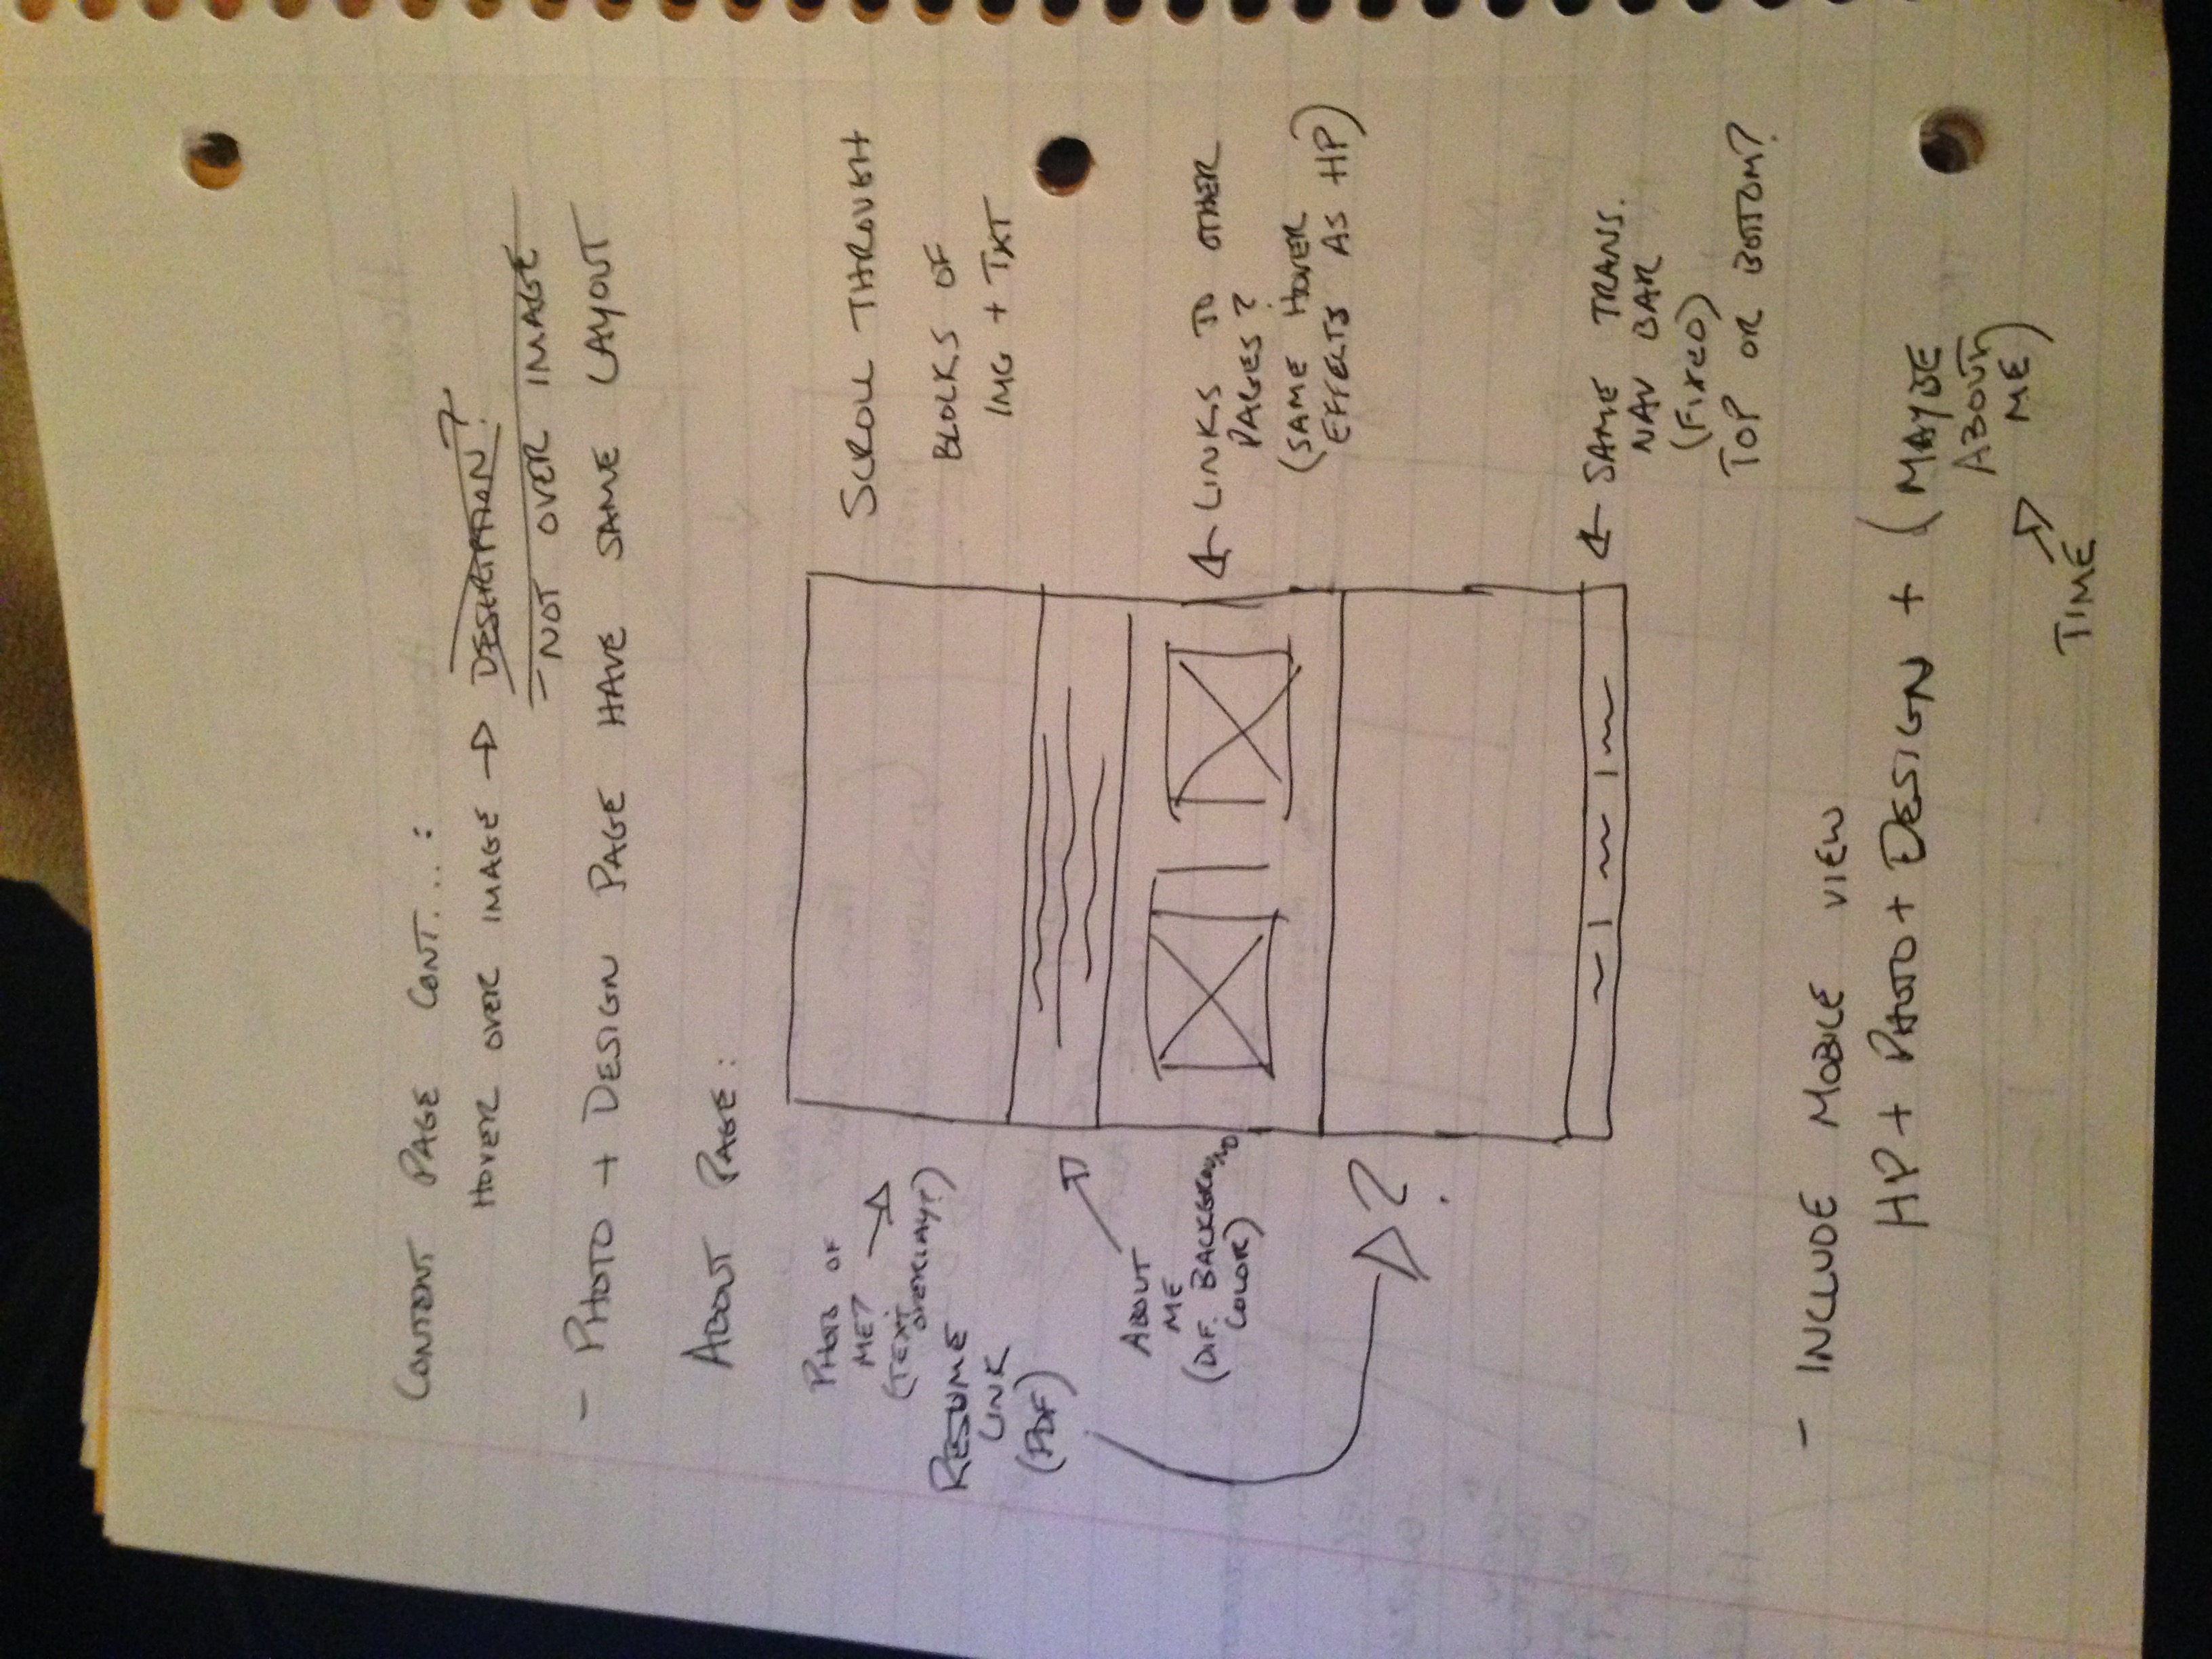 CONTENT PAGE CONT....:
HOVER OVER IMAGE → DESCRIPTION?
- NOT OVER IMAGE
- PHOTO + DESIGN PAGE HAVE SAME LAYOUT
ABOUT PAGE:
PHOTO OF
ME?
(TEXT
OVERLAY?)
RESUME
LINK
(PDF)
ABOUT
ME
(DIF. BACKGROUND
COLOR)
?
SCROLL THROUGH
BLOCKS OF
IMG + TXT
LINKS TO OTHER
PAGES?
(SAME HOVER
EFFECTS AS HP)
SAME TRANS.
NAV BAR
(FIXED)
TOP OR BOTTOM?
- INCLUDE MOBILE VIEW
HP + PHOTO + DESIGN + (MAYBE
ABOUT
ME)
TIME